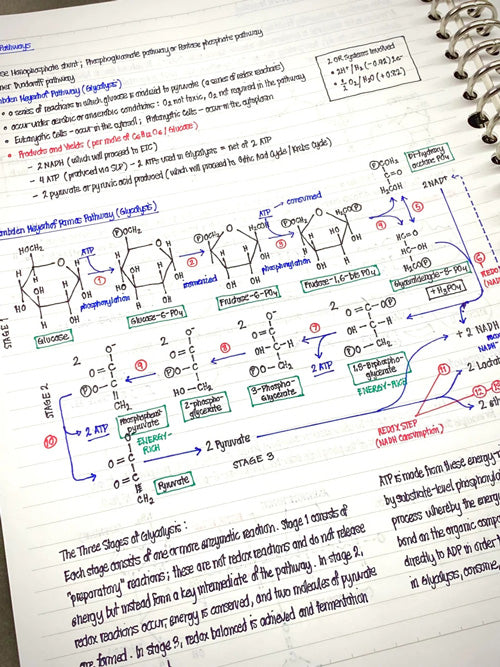 Pathways
se Monophosphate shunt; Phosphogluconate pathway or Pentose phosphate pathway
ner Dundoroff pathway
mbden Meyerhof Pathway (Glycolysis)
• a series of reactions in which glucose is oxidized to pyruvate (a series of redox reactions)
• occur under aerobic or anaerobic conditions : O2 not toxic, O2 not required in the pathway
• Eukaryotic Cells - occur in the cytosol ; Prokaryotic Cells - occur in the cytoplasm
• Products and Yields (per mole of C6H12O6 / Glucose)
- 2 NADH (which will proceed to ETC)
- 4 ATP (produced via SLP) - 2 ATPs used in Glycolysis = net of 2 ATP
- 2 pyruvate or pyruvic acid produced (which will proceed to
2 OR Systems Involved
• 2H+ / H2 (-0.42) 2e-
• ½ O2 / H2O (+0.82)
mbden Meyerhof Parnas Pathway (Glycolysis)
STAGE 1
HOCH2
ATP
①
phosphorylation
Glucose
ⓅOCH2
②
isomerized
Glucose-6-PO4
ⓅOCH2
ATP → consumed
③
phosphorylation
Fructose-6-PO4
ⓅOCH2
H2COⓅ
Fructose-1,6-bis PO4
④
⑤
ⓅOCH2
C=O
H2COH
Di-hydroxy
acetone PO4
2 NAD+
HC=O
HC-OH
H2COⓅ
Glyceraldehyde-3-PO4
+ H3PO4
⑥
REDOX
STAGE 2
2 O=C-OⓅ
OH-C-H
ⓅO-CH2
1,3-Biphospho-
glycerate
ENERGY-RICH
⑦
2 ATP
2 O-
O=C
OH-C-H
ⓅO-CH2
3-Phospho-
Glycerate
⑧
2 O-
O=C
HO-CH2
2-phospho-
glycerate
⑨
2 O-
O=C
ⓅO-C
CH2
Phosphoenol-
pyruvate
ENERGY-
RICH
⑩
2 ATP
O=C
O=C
CH2
Pyruvate
2 Pyruvate
STAGE 3
+ 2 NADH
⑪
⑫
REDOX STEP
(NADH Consumption)
The Three Stages of Glycolysis :
Each stage consists of one or more enzymatic reaction. Stage 1 consists of
"preparatory" reactions; these are not redox reactions and do not release
energy but instead form a key intermediate of the pathway. In stage 2,
redox reactions occur, energy is conserved, and two molecules of pyruvate
are formed. In stage 3, redox balanced is achieved and fermentation
ATP is made from these energy-
by substrate-level phosphoryla
process whereby the energy
bond on the organic comp
directly to ADP in order
in glycolysis, consume,